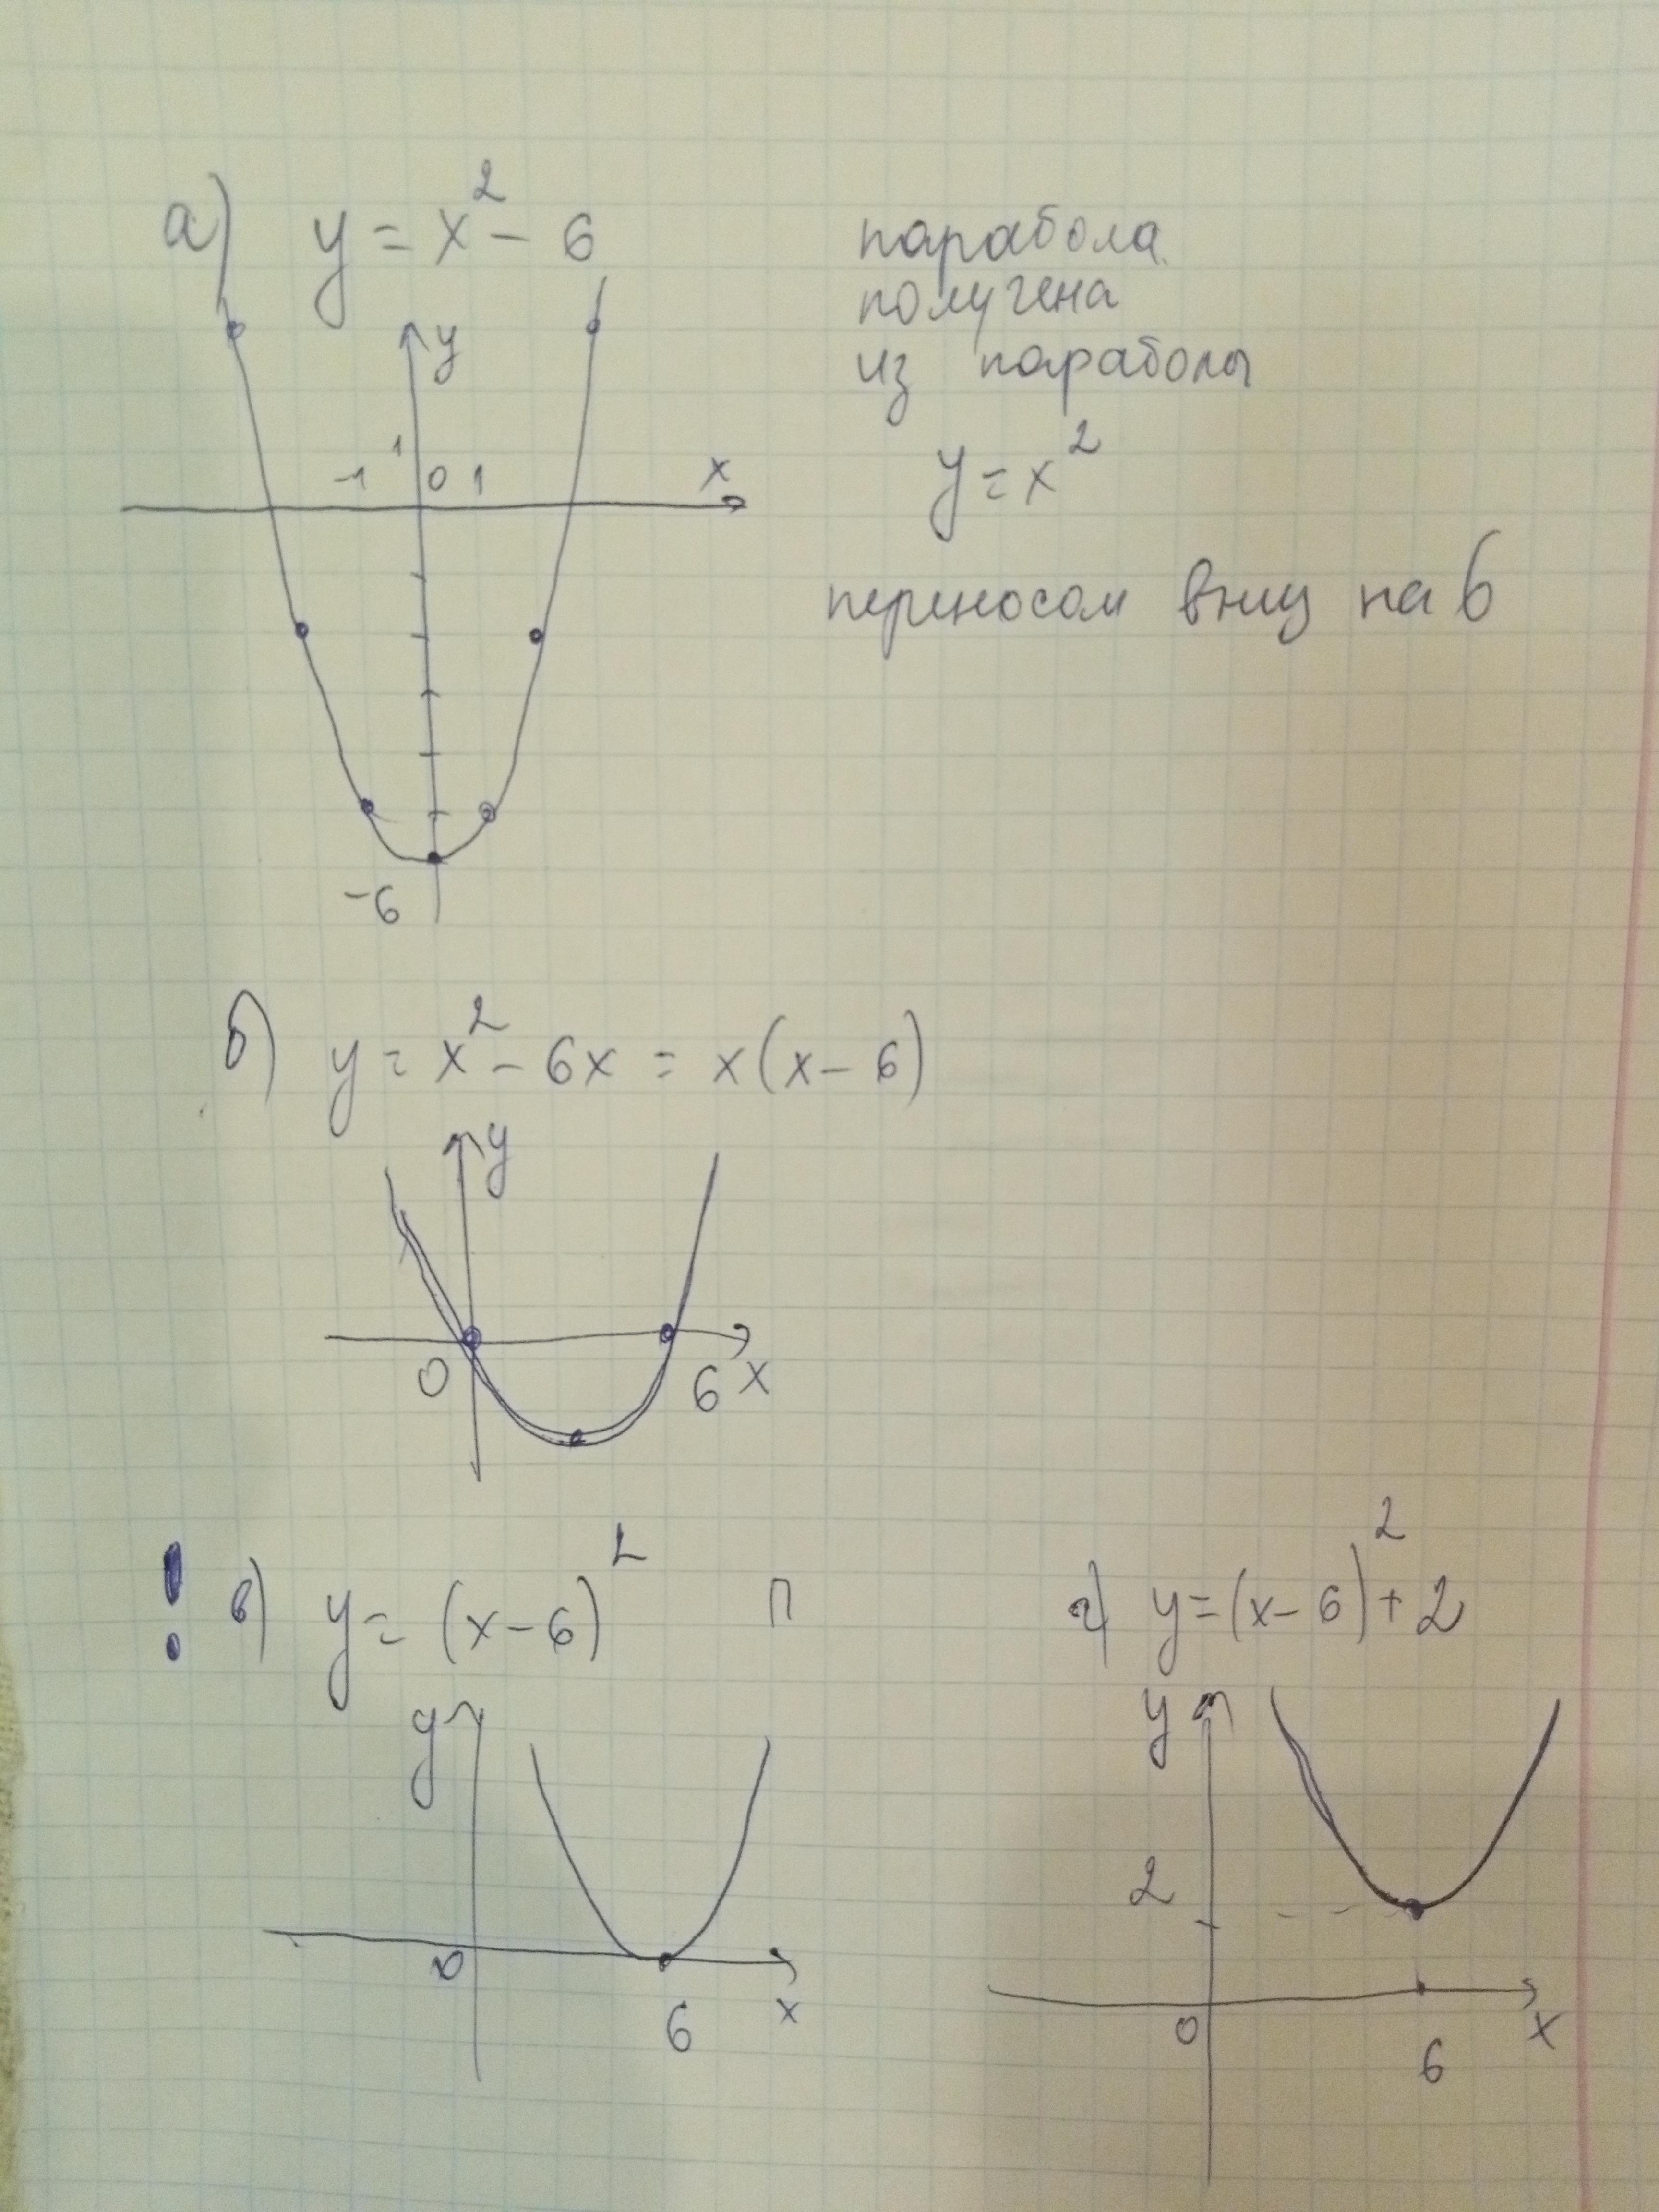 а) y = x² - 6
парабола
получена
из параболы
y = x²
переносом вниз на 6
y
1
-1 0 1 x
-6
б) y = x² - 6x = x(x - 6)
y
0 6 x
! в) y = (x - 6)² П
y
0 6 x
г) y = (x - 6)² + 2
y
2
0 6 x